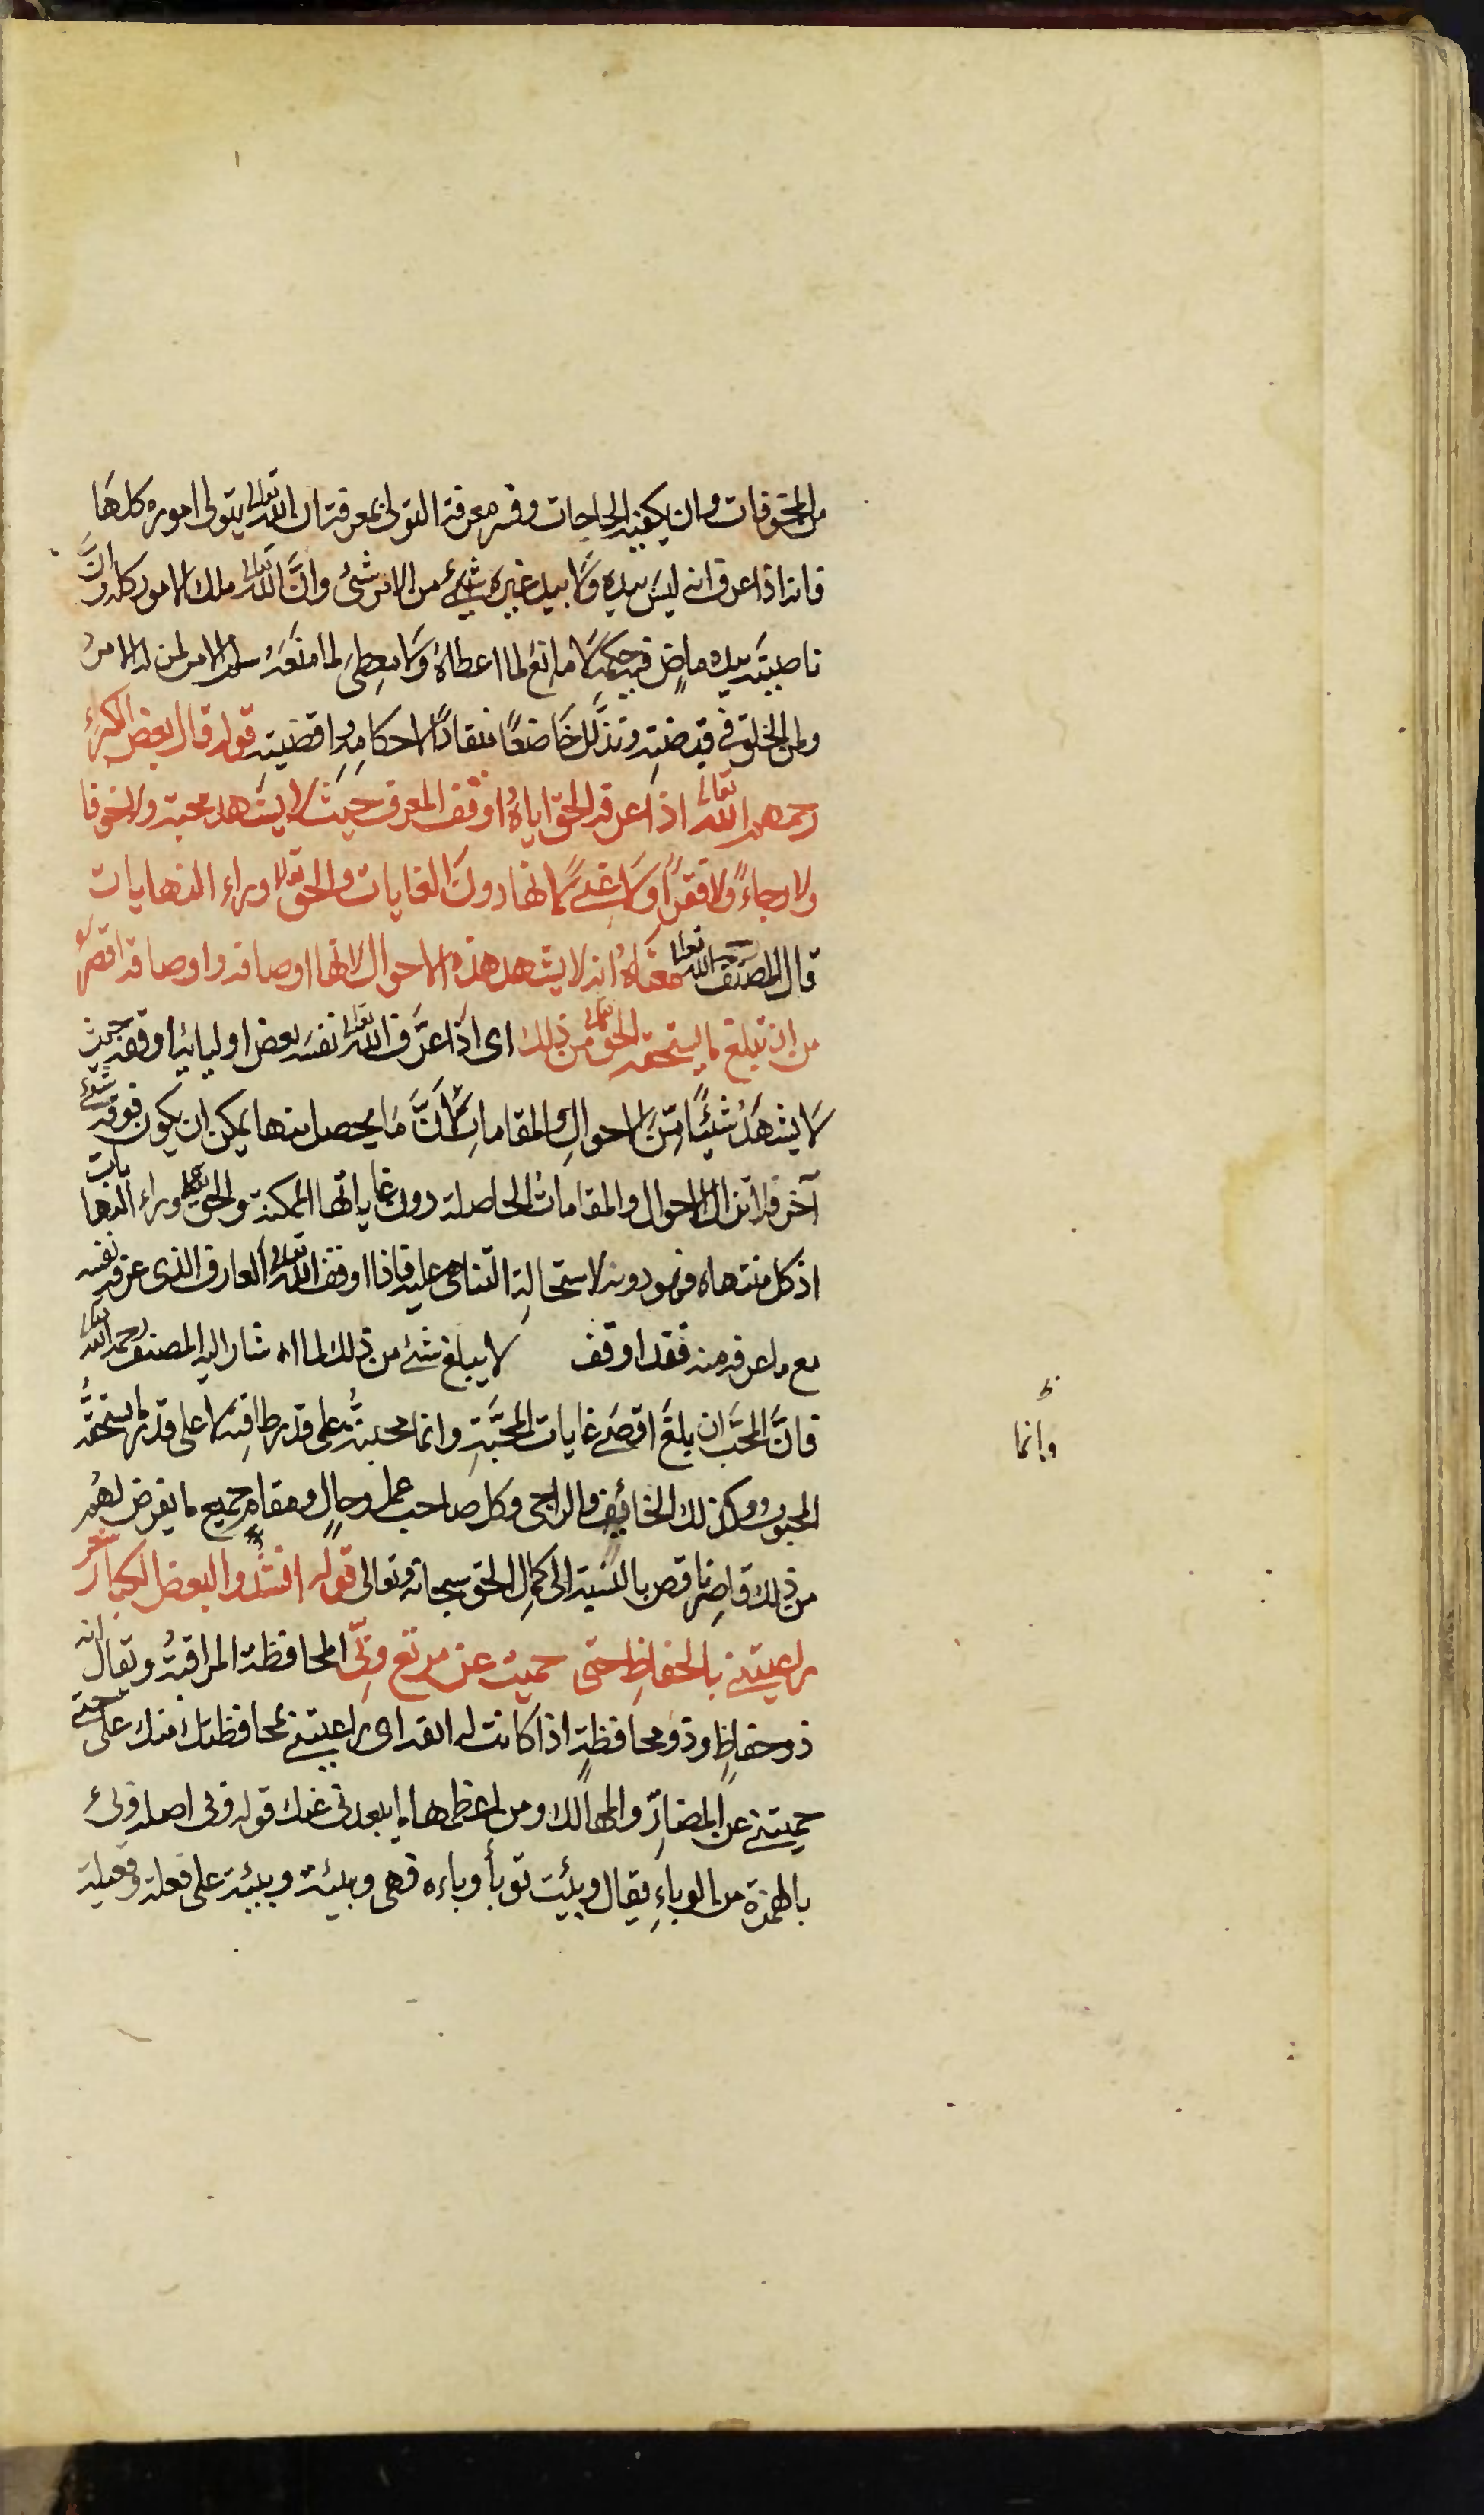 من المخوفات وان يكفيه الحاجات وفسر معرفة التولى بمعرفته ان الله تعالى يتولى اموره كلها
فانه اذا عرف انه ليس بيده ولا بيد غيره شيئ من الامر شئ وانَّ الله تعالى ملك الامور كلها وانَّ
ناصيته بيده ماضٍ فيه حكمه لا مانع لما اعطاه ولا معطى لما منعه سلم الامر لمن له الامرُ
ولمن الخلق فى قبضته وتذلَّل خاضعًا منقادًا لاحكامه واقضيته قوله قال بعض الكبراء
رحمهم الله تعالى اذا عرفه الحق اياهُ اوقف المعرفة حيث لا يشهد محبة ولا خوفا
ولا رجاءً ولا فقرًا ولا غنى لانها دون الغايات والحق تعالى وراء النهايات
قال المصنف رحمه الله تعالى معناه انه لا يشهد هذه الاحوال لانها اوصافه واوصافه اقصر
من ان تبلغ ما يستحقه الحق تعالى من ذلك اى اذا عرَّف الله تعالى نفسه بعض اوليائه اوقفه حيث
لا يشهد شيئًا من الاحوال والمقامات لانَّ ما يحصل منها يمكن ان يكون فوقه شئ
آخر فلا تزال الاحوال والمقامات الحاصلة دون غاياتها الممكنة والحق تعالى وراء النهايات
اذ كل منتهاه فهو دونه لاستحالة التناهى عليه فاذا اوقف الله تعالى العارف الذى عرفه نفسه
مع ما عرفه منه فقد اوقف لا يبلغ شئ من ذلك لما اشار اليه المصنف رحمه الله تعالى
فانَّ المحبَّ ان بلغ اقصى غايات المحبَّة وانما محبته على قدر طاقته لا على قدر ما يستحقُّه
وانما
المحبوب وكذلك الخائف والراجى وكل صاحب عمل وحالٍ ومقامٍ جميع ما يفرض لهم
من ذلك قاصر ناقص بالنسبة الى كمال الحق سبحانه وتعالى قوله انشدوا لبعض الكبار شعر
راعيتنى بالحفاظ حتى حميت عن مرتع وبىّ المحافظة المراقبة ويقال انه
ذو حفاظٍ وذو محافظةٍ اذا كانت له انفة اى راعيتنى بمحافظتك منك على حتى
حميتنى عن المضارّ والمهالك ومن اعظمها ما يبعدنى عنك قوله وبى اصله وبئ
بالهمزة من الوباءِ يقال وبئت توبأ وباءه فهى وبيئة ووبئة على فعلة وفعيلة